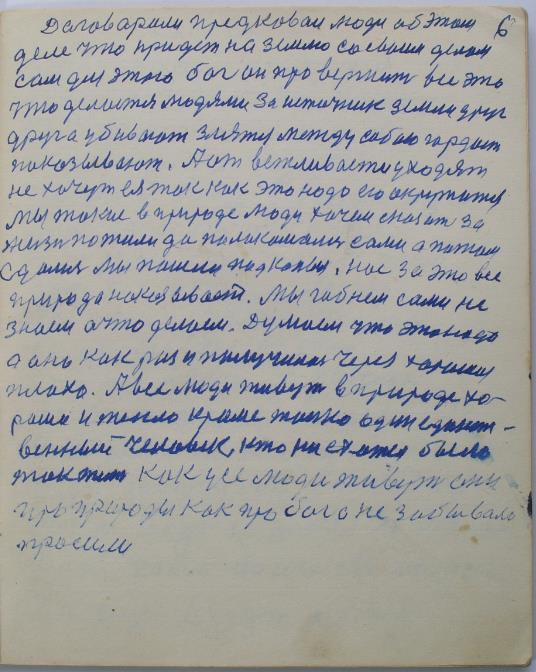 6
Даговарали предковаи люди об этом
деле что придет на землю со своим делом
сам для этого бог он провернит все это
что делается людями За источник земли друг
друга убивают злятся между сабою гардост
показывают. А от вежливасти уходят
не хочут ея так как это надо ею окружатся
мы такие в природе люди хочем сказат За
жизн пожили да полакомалис сами а патом
сдалис мы пошли под копыл. нас За это все
природа наказывает. Мы гибнем сами не
знаем а что делаем. Думаем что это надо
а оно как раз и получилас через хорошая
плохо. А все люди живут в природе хо-
рашо и тепло кроме толко один единст-
венный человек, кто не схотел было
так жит как усе люди живут они
про природы как про бога не забывали
просили